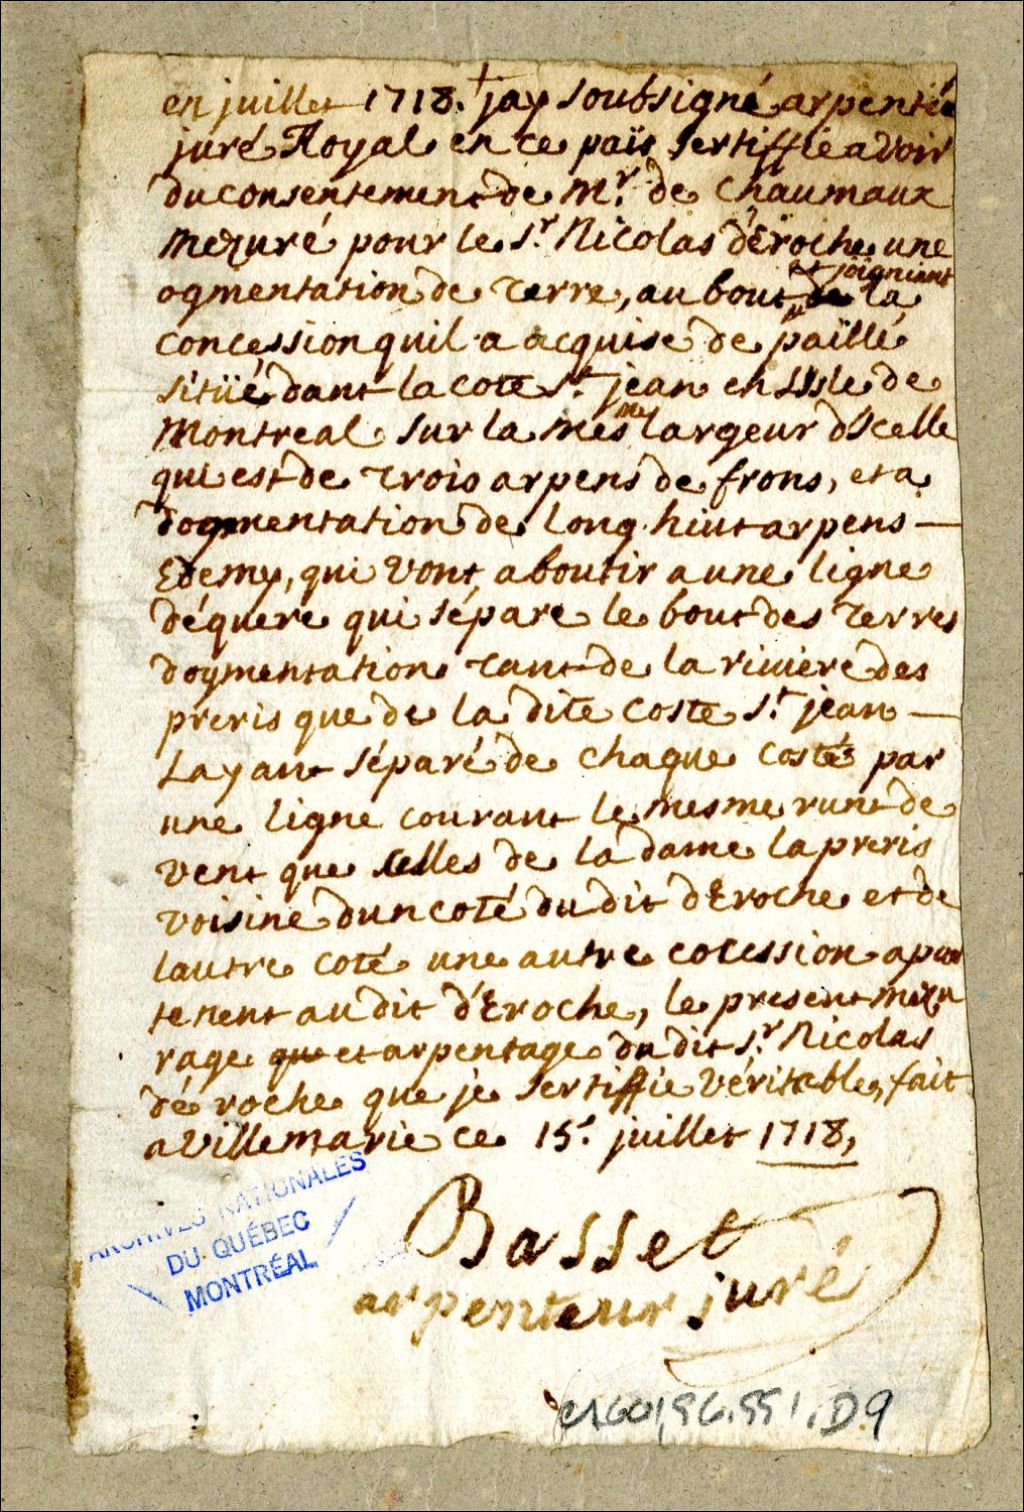 en juillet 1718. + jay soubsigné arpenteu
juré Royal en ce païs sertiffie avoir
du consentement de Mr. de Chaumaux
mezuré pour le Sr. Nicolas dÉroche une
ogmentation de terre, au bout et joigniant la
concession quil a acquise de païllé
sitüé dant la cote St. jean en Lisle de
Montreal sur la mesme largeur d'Icelle
qui est de trois arpens de frons, et a
dogmentation de long huit arpens —
Edemy, qui vont aboutir a une ligne
déquere qui sépare le bout des terres
dogmentation tant de la riviere des
preris que de la dite coste St. jean —
Layant séparé de chaque costé par
une ligne courant le mesme runt de
vent que selles de la dame la preris
voisine dun coté du dit dEroche et de
lautre coté une autre cocession apar
tenent au dit d'Eroche, le present mezu
rage et arpentage du dit Sr. Nicolas
dé roche que je sertiffie véritable, fait
a Villemarie ce 15. juillet 1718,
Basset
arpenteur juré
ARCHIVES NATIONALES
DU QUÉBEC
MONTRÉAL
D9